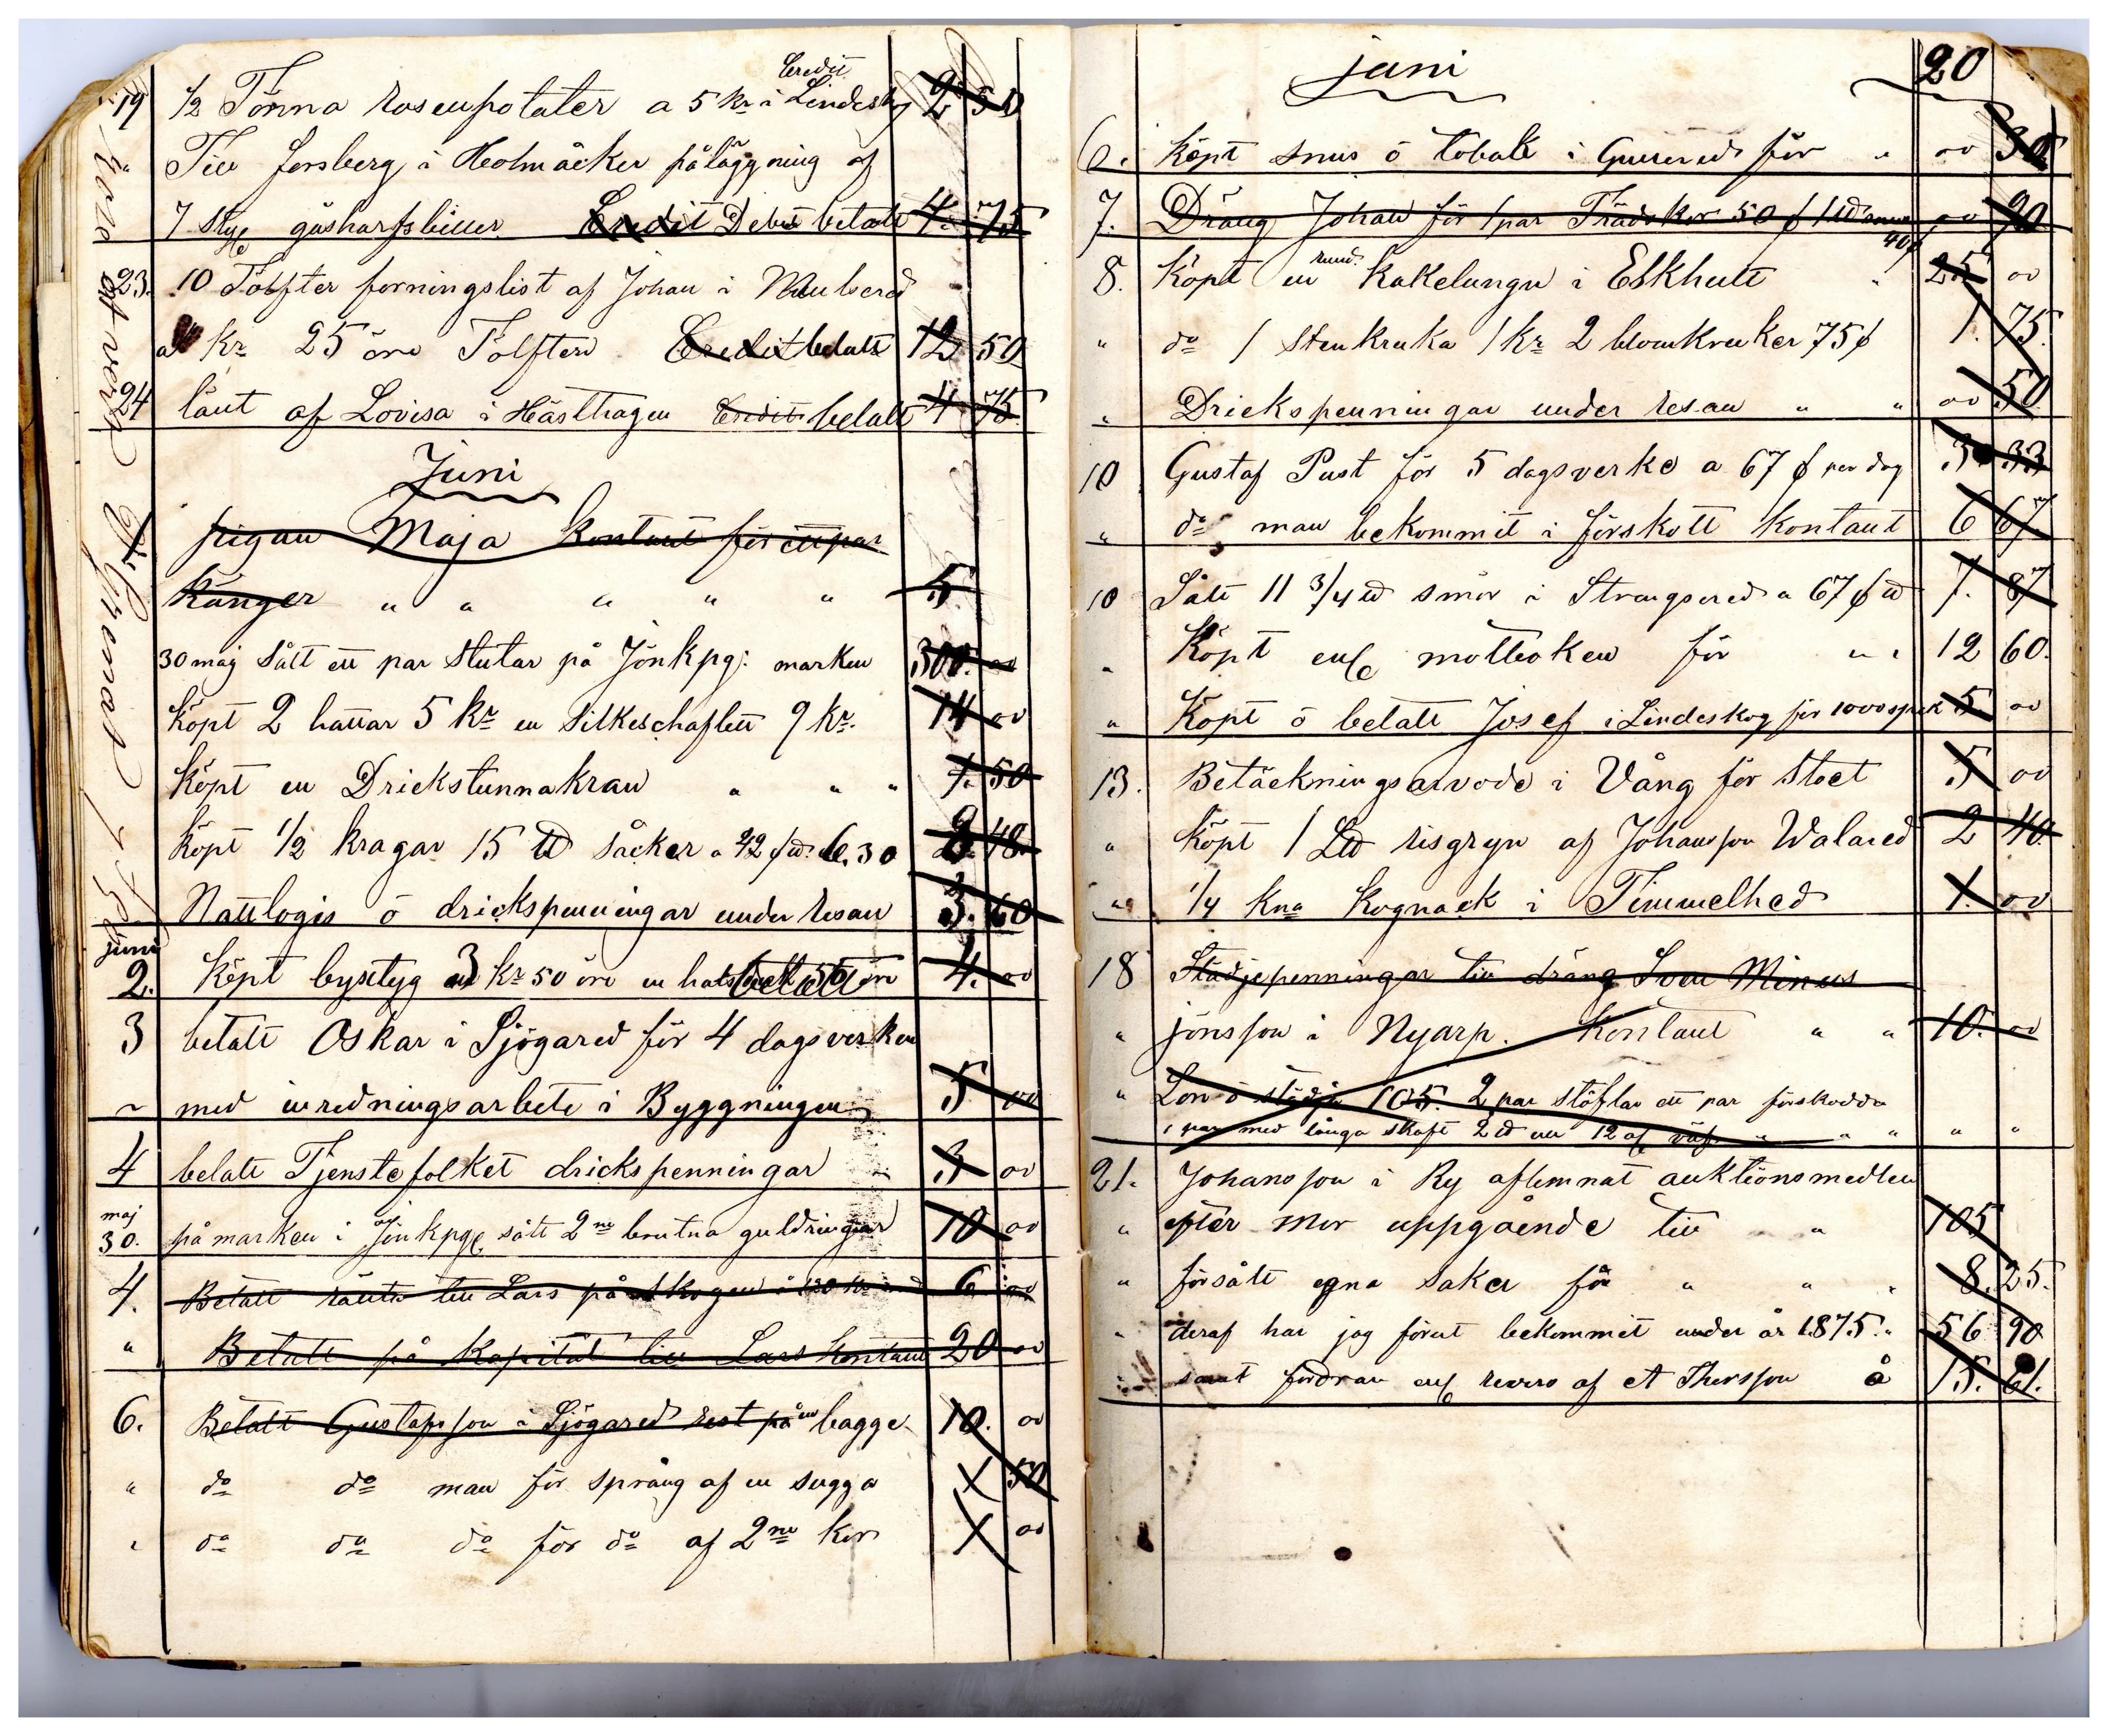 Credit
19 1/2 Tönna rosenpotater a 5 kr i Lindeskog 2 50
" Till forsberg i Holmåcker påläggning af
7 Styc gåsharfsbillar Credit Debet betalt 4. 75
23. 10 Tolfter forningslist af Johan i
a kr 25 öre Tolften Credit betalt 12 50
24 lånt af Lovisa i Hästhagen Credit betalt 4 75
Juni
pigan Maja kontant för ett par
känger " " " " " 5
30 maj Sålt ett par Stutar på Jönkpg: marken 300. oo
Köpt 2 hattar 5 kr en Silkeschaflett 9 kr. 14 oo
Köpt en Drickstunnakran " " " 1. 50
köpt 1/2 kragar 15 ℔ Såcker a 42 ℔ 6,30 48
Nattlogis ö drickspenningar under resan 3. 60
juni
2. Köpt byxtyg 3 kr 50 öre en 4. oo
3 betalt Oskar i Sjögared för 4 dagsverken
~ med inredningsarbete i Byggningen 5 oo
4 betalt Tjenstefolket drickspenningar 3 oo
maj
30. på marken i Jönkpg sålt 2ne brutna guldringar 10 oo
4. Betalt ränta till Lars på Skogen 6 oo
" Betalt på Kapital till Lars kontant 20 oo
6. Betalt Gustafsson i Sjögared rest på en bagge 10. oo
" do do man för språng af en sugga 50
" do do do för do af 2ne kor oo
juni 20
6. köpt snus ö tobak i för " oo 30
7. Dräng Johan för 1 par Trädskor 50 1 ℔ snus 40 oo 90
8. Köpt en rund kakelungn i Eskhult " 25 oo
" do 1 Stenkruka 1 kr 2 blomkrukor 75 1. 75.
" Drickspenningar under resan " " oo 50
10 Gustaf Pust för 5 dagsverke a 67 per dag 3 33
" do man bekommit i förskott kontant 6 67
10 Sålt 11 3/4 ℔ smör i Strängsered a 67 ℔ 7. 87
" Köpt för " " 12 60.
" Köpt ö betalt Josef i Lindeskog för 1000 spik 5 oo
13. Betäckningsarvode i Vång för Stoet 5 oo
" köpt 1 L℔ risgryn af Johansson Walared 2 40
" 1/4 kna kognack i Timmelhed 1. oo
18 Städjepenningar till dräng Sven Minus
" jönsson i Nyarp. Kontant " " 10. oo
" Lön ö städja 105. 2 par stöflar ett par förskodda
1 par med långa skaft 2 ℔ ull 12 al " " " " "
21. Johansson i Ry aflemnat auktionsmedlen
" efter Mor uppgående till " 105
" försålt egna saker för " " " 8. 25.
" deraf har jag förut bekommit under år 1875. " 56 90
" samt fordran revers af A Thorsson å 15. 61.